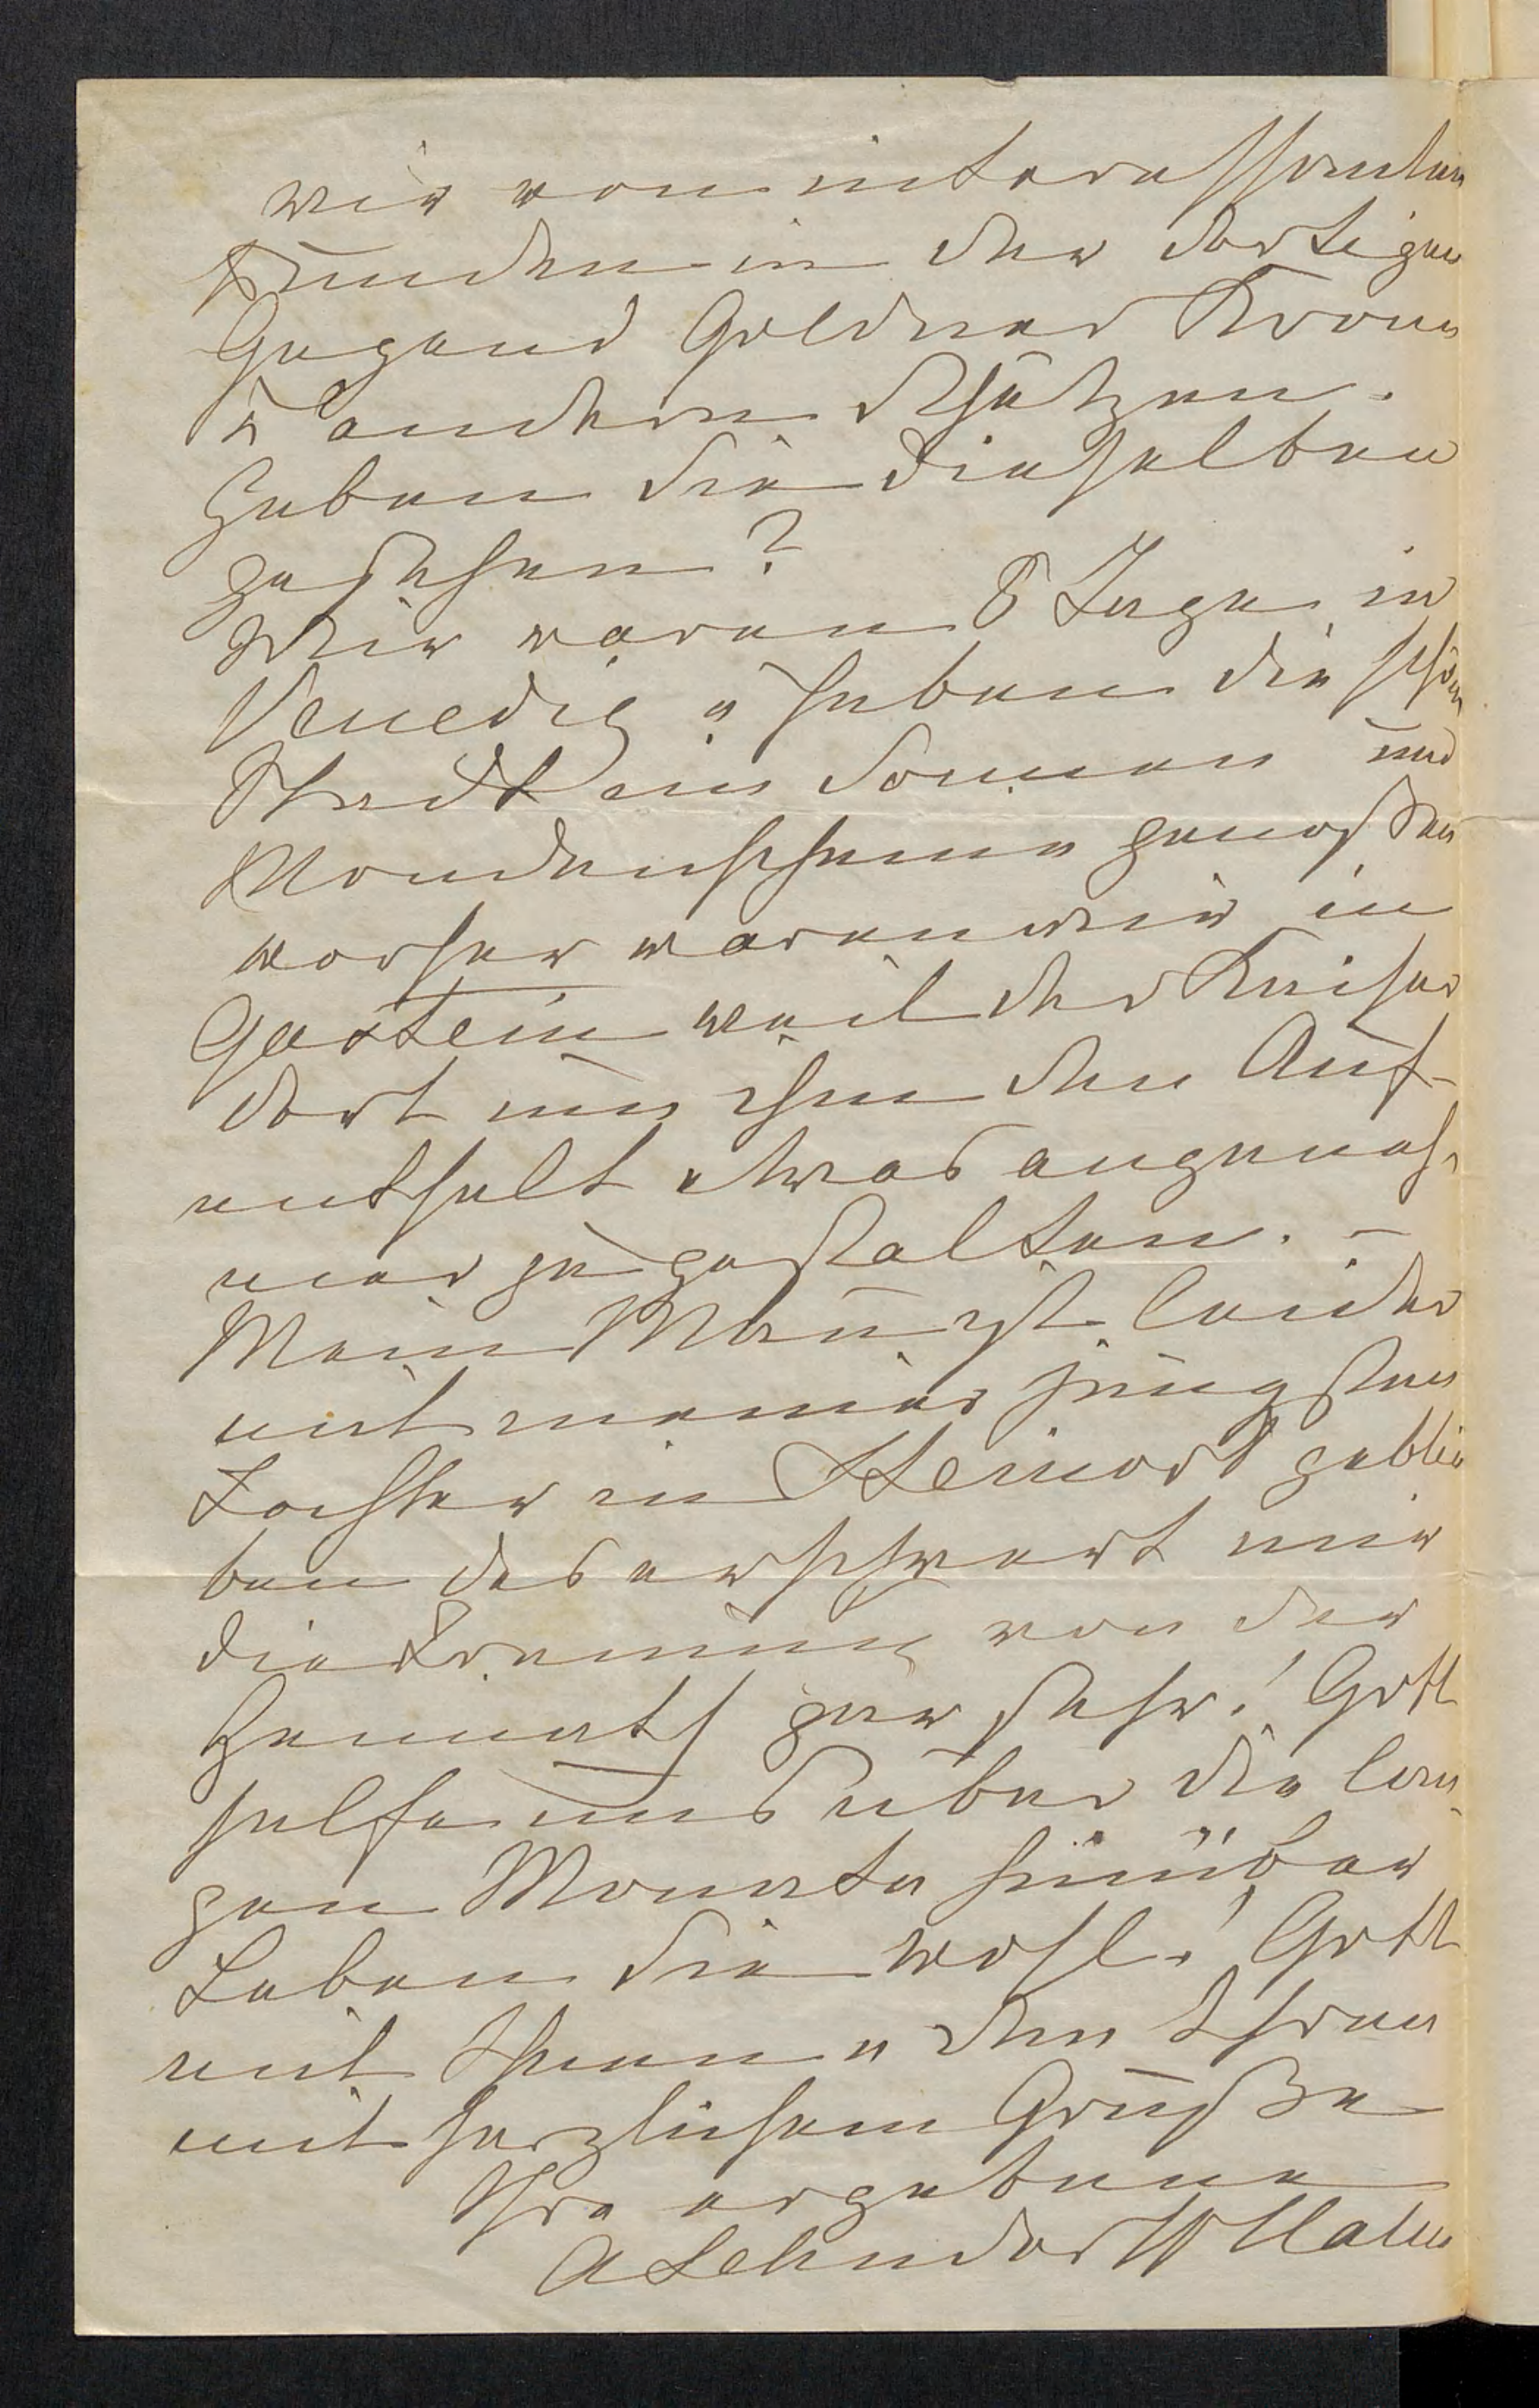 wir von interessanten
Funden in der dortigen
Gegend Goldner Krone
u andern Schätzen.
Haben Sie dieselben
gesehen?
Wir waren 8 Tage in
Venedig u haben die schöne
Stadt im Sonnen und
Mondenscheine genoßen
vorher waren wir in
Gastein weil der Kaiser
dort um ihm den Auf-
enthalt etwas angeneh-
mer zu gestalten. –
Mein Mann ist leider
mit meiner jüngsten
Tochter in Steinort geblie
ben das erschwert mir
die Trennung von der
Heimath gar sehr! Gott
helfe uns über die lan-
gen Monate hinüber
Leben Sie wohl! Gott
mit Ihnen u den Ihren
mit herzlichem Gruße
Ihre ergebene
A Lehndorff